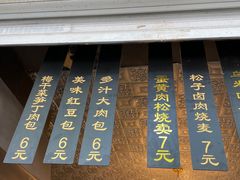 梅干菜笋丁肉包 6元
美味红豆包 6元
多汁大肉包 6元
蛋黄肉松烧卖 7元
松子卤肉烧麦 7元